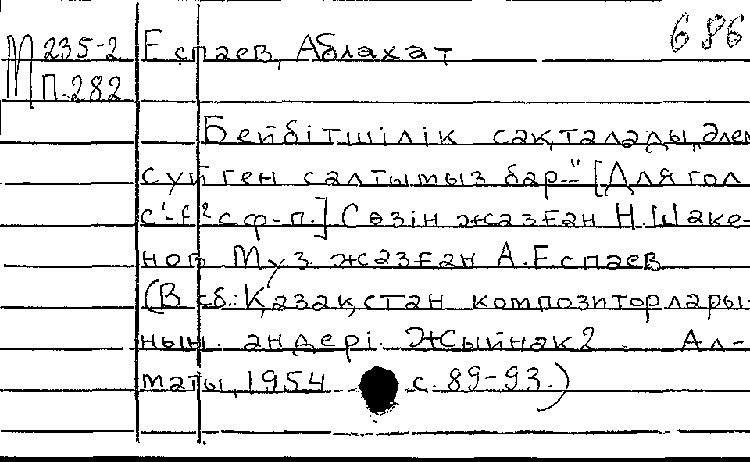 М 235-2 Еспаев, Аблахат 686
П.282
Бейбітшілік сақталады, Әлем
сүйген салтымыз бар..." [Для гол
с¹-f² с ф-п.] Сөзін жазған Н. Шаке-
нов Муз жазған А. Еспаев
(В сб.: Қазақстан композиторлары-
ның әндері. Жыйнақ 2. Ал-
маты, 1954 с. 89-93.)